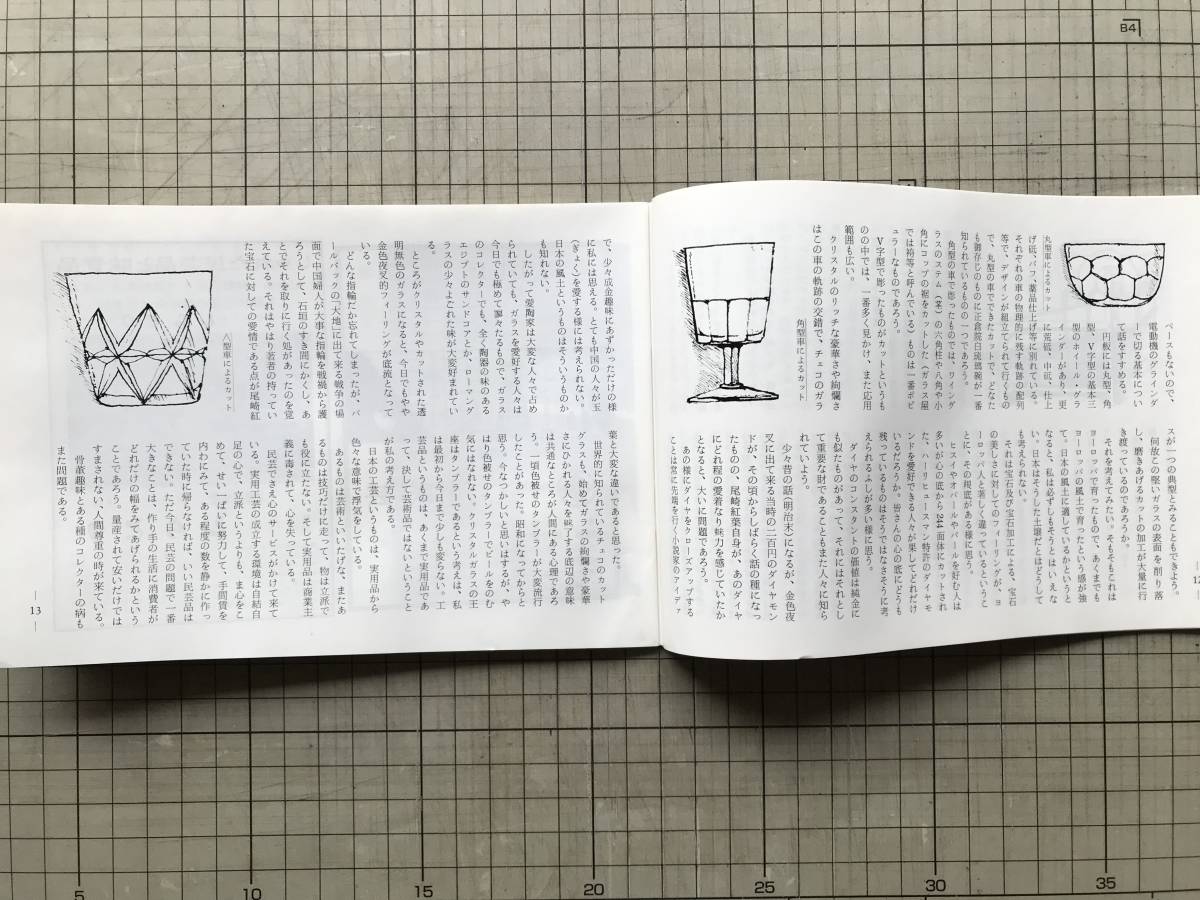 ペースもないので、
電動機のグラインダ
ーで切る基本につい
て話をすすめる。
円板には丸型、角
型、V字型の基本三
型のホイール・グラ
インダーがあり、更
に荒砥、中砥、仕上
げ砥、バフ、薬品仕上げ等に別れている。
それぞれの車の物理的に残す軌跡の配列
等で、デザインが組立てられて行くもの
で、丸型の車でできたカットで、どなた
も御存じのものに正倉院白琉璃碗が一番
知られているものの一つであろう。
角型の車で彫ったものでは、ハンディング
ラスのステム（本）の六角柱や八角や小
角にコップの裾をカットした（ガラス屋
では袴等と呼んでいる）ものは一番ポピ
ュラーなものであろう。
V字型で彫ったものがカットというも
のの中では、一番多く見かけ、また応用
範囲も広い。
クリスタルのリッチな豪華さや絢爛さ
はこの車の軌跡の交錯で、チェコのガラ
丸型車によるカット
角型車によるカット
スが一つの典型とみることもできよう。
何故この堅いガラスの表面を削り落
し、磨きあげるカットの加工が大量に行
き渡っているのであろうか。
それを考えてみたい。そもそもこれは
ヨーロッパで育ったもので、あくまでも
ヨーロッパの風土で育ったという感が強
い。日本の風土に適しているかというと
なると、私は必ずしもそうとはいえな
い。日本はそうした土壌だとはどうして
も考えられない。
それは宝石及び宝石加工による、宝石
の美しさに対してのフィーリングが、ヨ
ーロッパ人と著しく違っているというこ
とに、その根底がある様に思う。
ヒスイやオパールやパールを好む人は
多いが心の底から244面体にカットされ
た、ハーリ・ヒュースマン特許のダイヤモ
ンドを愛好できる人々が果してどれだけ
いるだろうか。皆さんの心の底にどうも
残っているものはそうではなさそうに考
えられるふしが多い様に思う。
ダイヤのコンスタントの価値は純金に
も似たものがあって、それにはそれとし
て重要な財であることもまた人々に知ら
れていよう。
少々昔の話（明治末）になるが、金色夜
叉に出て来る当時の二百円のダイヤモン
ドが、その頃からしばらく話の種になっ
たものの、尾崎紅葉自身が、あのダイヤ
にどれ程の愛着なり魅力を感じていたか
となると、大いに問題であろう。
あの様にダイヤをクローズアップする
ことは常に先鞭を行く小説家のアイデア
— 12 —
で、少々成金趣味にあずかっただけの様
に私には思える。とても中国の人々が玉
（ぎょく）を愛する様には考えられない。
日本の風土というものはそういうものか
も知れない。
したがって愛陶家は大変な人々で占め
られていても、ガラスを愛好する人々は
今日でも極めて寥々たるもので、ガラス
のコレクターでも、全く陶器の味のある
エジプトのサンドコアとか、ローマング
ラスの少々よごれた味が大変好まれてい
る。
ところがクリスタルやカットされた透
明無色のガラスになると、今日でもやや
金色夜叉的フィーリングが底流となって
いる。
どんな指輪だか忘れてしまったが、パ
ールバックの「大地」に出て来る戦争の場
面で中国婦人が大事な指輪を戦禍から護
ろうとして、石垣のすき間にかくし、あ
とでそれを取りに行く処があったのを覚
えている。それはやはり著者の持ってい
た宝石に対しての愛情である点が尾崎紅
葉と大変な違いであると思った。
世界的に知られているチェコのカット
グラスも、始めてガラスの絢爛さや豪華
さにひかれる人々を魅了する底辺の意味
は共通なところが人間にある心理であろ
う。一頃色被せのタンブラーが大変流行
したことがあった。昭和になってからと
思う。今なつかしいと思いはするが、や
はり色被せのタンブラでビールをのむ
気にはなれない。クリスタルグラスの王
座はタンブラーであるという考えは、私
は最初から今日まで少しも変らない。工
芸品というものは、あくまで実用品であ
って、決して芸術品ではないということ
が私の考え方である。
日本の工芸というものは、実用品から
色々な意味で浮気をしている。
あるものは芸術といいたげな、またあ
るものは技巧だけに走って、物は立派で
も役に立たない。そして実用品は商業主
義に毒されて、心を失っている。
民芸でさえ心のサービスがかけて来て
いる。実用工芸の成立する環境は自給自
足の心で、立派というよりも、ま心をこ
めて、せい一ぱいに努力して、手間賃を
内わにみて、ある程度の数を静かに作っ
ていた時に帰らなければ、いい民芸品は
できない。ただ今日、民芸の問題で一番
大きなことは、作り手の生活に消費者が
どれだけの幅をみてあげられるかという
ことであろう。量産されて安いだけでは
すまされない、人間尊重の時が来ている。
骨董趣味とある種のコレクターの病も
また問題である。
八型車によるカット
— 13 —
B4
5
10
15
20
25
30
35